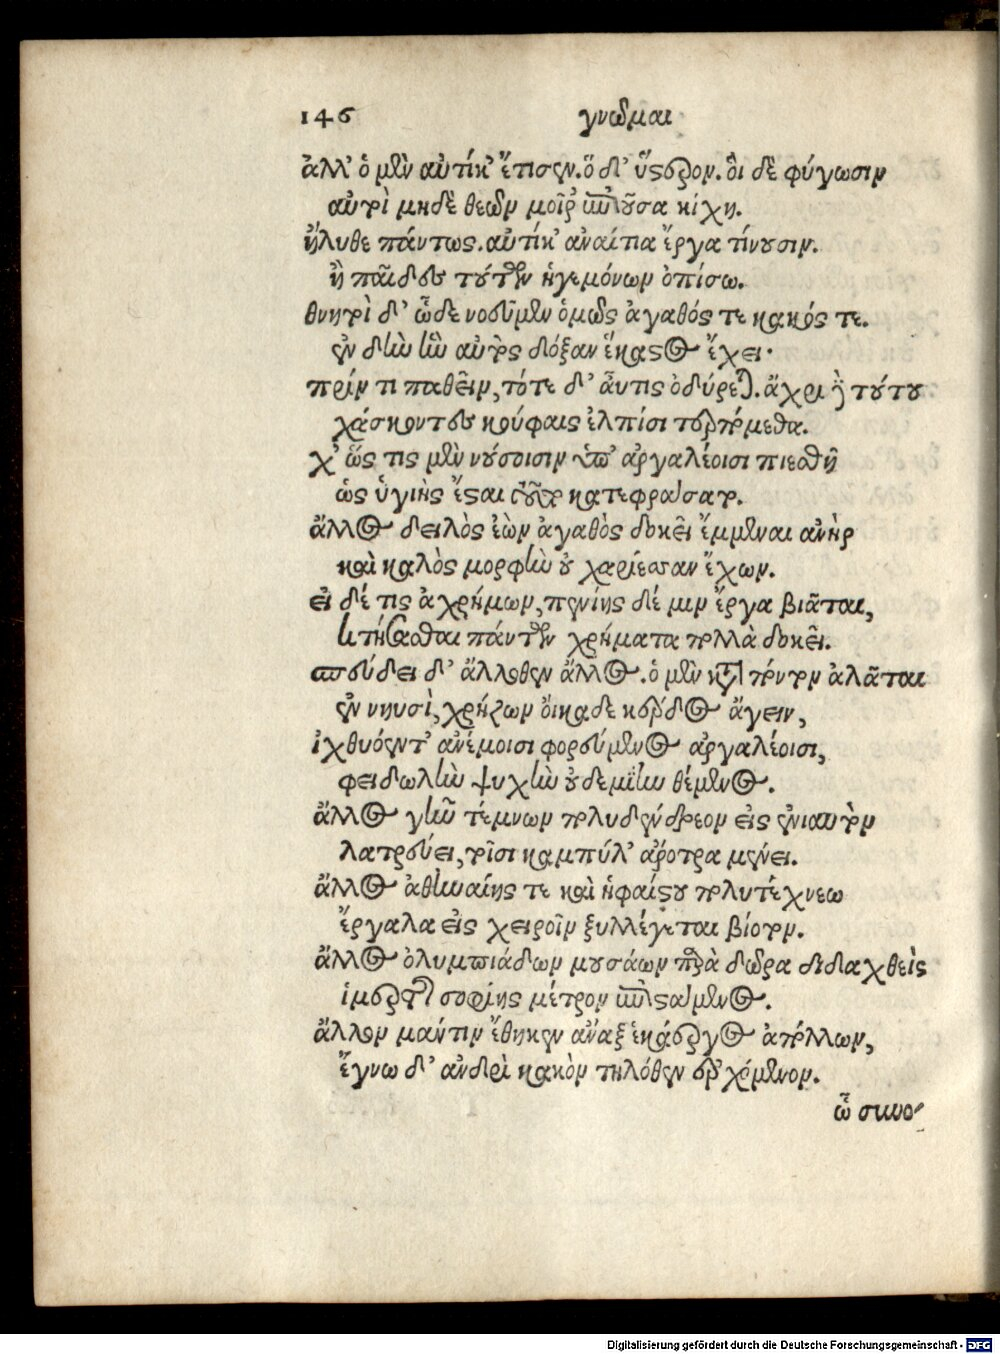 146 γνῶμαι
ἀλλ' ὁ μὲν αὐτίκ' ἔτισεν. ὃ δ' ὕστερον. οἳ δὲ φύγωσιν
αὐτοὶ μηδὲ θεῶν μοῖρ' ἐπιοῦσα κίχῃ.
ἤλυθε πάντως. αὐτίκ' ἀναίτια ἔργα τίνουσιν.
ἢ παῖδες τούτων ἡγεμόνων ὀπίσω.
θνητοὶ δ' ὧδε νοεῦμεν ὁμῶς ἀγαθός τε κακός τε.
ἐν δὴν ἣν αὐτὸς δόξαν ἕκαστος ἔχει·
πρίν τι παθεῖν, τότε δ' αὖτις ὀδύρεται. ἄχρι δὲ τούτου
χάσκοντες κούφαις ἐλπίσι τερπόμεθα.
χ' ὥς τις μὲν νούσοισιν ὑπ' ἀργαλέοισι πιεσθῇ
ὡς ὑγιὴς ἔσται τοῦτο κατεφράσατο.
ἄλλος δειλὸς ἐὼν ἀγαθὸς δοκεῖ ἔμμεναι ἀνὴρ
καὶ καλὸς μορφὴν οὐ χαρίεσσαν ἔχων.
εἰ δέ τις ἀχρήμων, πενίης δέ μιν ἔργα βιᾶται,
κτήσασθαι πάντων χρήματα πολλὰ δοκεῖ.
σπεύδει δ' ἄλλοθεν ἄλλος. ὁ μὲν κατὰ πόντον ἀλᾶται
ἐν νηυσὶ, χρῄζων οἴκαδε κέρδος ἄγειν,
ἰχθυόεντ' ἀνέμοισι φορεύμενος ἀργαλέοισι,
φειδωλὴν ψυχὴν οὐδεμίην θέμενος.
ἄλλος γῆν τέμνων πολυδένδρεον εἰς ἐνιαυτὸν
λατρεύει, τοῖσι καμπύλ' ἄροτρα μένει.
ἄλλος ἀθηναίης τε καὶ ἡφαίστου πολυτέχνεω
ἔργαλα εἰς χειροῖν ξυλλέγεται βίοτον.
ἄλλος ὀλυμπιάδων μουσάων παρὰ δῶρα διδαχθεὶς
ἱμερτῆς σοφίης μέτρον ἐπιστάμενος.
ἄλλον μάντιν ἔθηκεν ἄναξ ἑκάεργος ἀπόλλων,
ἔγνω δ' ἀνδρὶ κακὸν τηλόθεν ἐρχόμενον.
ὦ συνο-
Digitalisierung gefördert durch die Deutsche Forschungsgemeinschaft - DFG